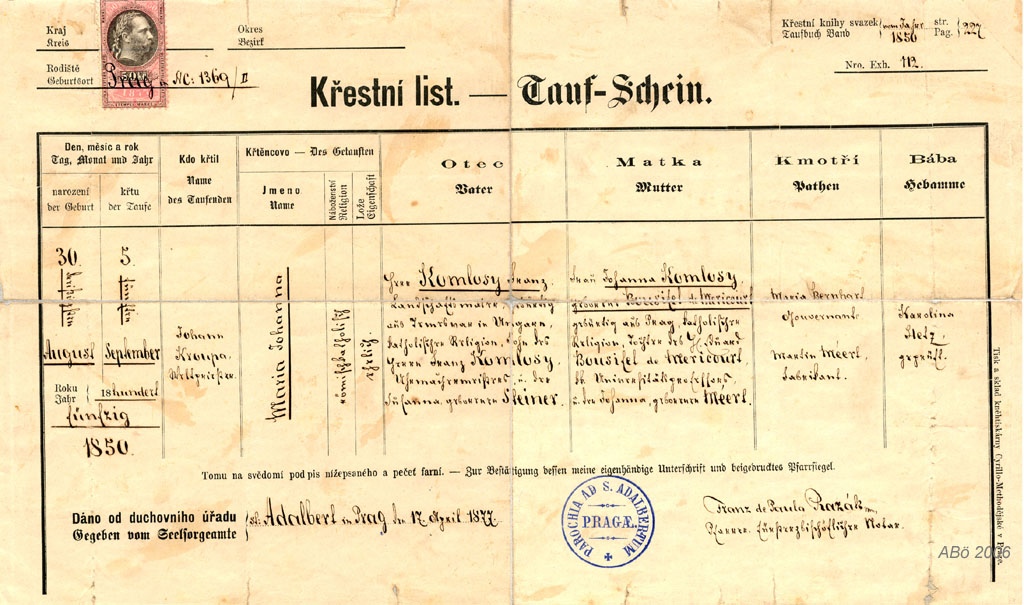 Kraj
Kreis
Okres
Bezirk
Rodiště
Geburtsort
Prag № C: 1369/II
Křestní knihy svazek
Taufbuch Band
vom Jahr
1850
str.
Pag.
227
Nro. Exh. 112.
Křestní list. — Tauf-Schein.
Den, měsíc a rok
Tag, Monat und Jahr
narození
der Geburt
křtu
der Taufe
Kdo křtil
Name
des Taufenden
Křtěncovo — Des Getauften
Jmeno
Name
Náboženství
Religion
Lože
Eigenschaft
Otec
Vater
Matka
Mutter
Kmotři
Pathen
Bába
Hebamme
30.
dreißigsten
August
5
fünften
September
Roku
Jahr
18hundert
fünfzig
1850.
Johann
Kroupa,
Weltpriester.
Maria Johana
römischkatholisch
ehrlich.
Herr Komlosy Franz
Landschaftmaler, gebürtig
aus in Ungarn,
katholischer Religion, Sohn des
Herrn Franz Komlosy,
u. der
Susanna, geborenen Steiner.
Frau Johanna Komlosy,
geborene Bousifel de Mericourt
gebürtig aus Prag, katholischer
Religion, Tochter des H. Eduard
Bousifel de Mericourt,
kk. Universitätsprofessors,
u. der Johanna, geborenen Meerl.
Maria Bernhart
Gouvernante
Martin Meerl,
Fabrikant.
Karolina
Petz,
geprüft.
Tomu na svědomí podpis nížepsaného a pečeť farní. — Zur Bestättigung dessen meine eigenhändige Unterschrift und beigedrucktes Pfarrsiegel.
Dáno od duchovního úřadu
Gegeben vom Seelsorgeamte
St. Adalbert in Prag den 17 April 1877
PAROCHIA AD S. ADALBERTUM
PRAGÆ
Franz de Paula
Pfarrer, fürsterzbischöflicher Notar.
Tisk a sklad kněhtiskárny Cyrillo-Methodějské v Praze.
ABö 2006